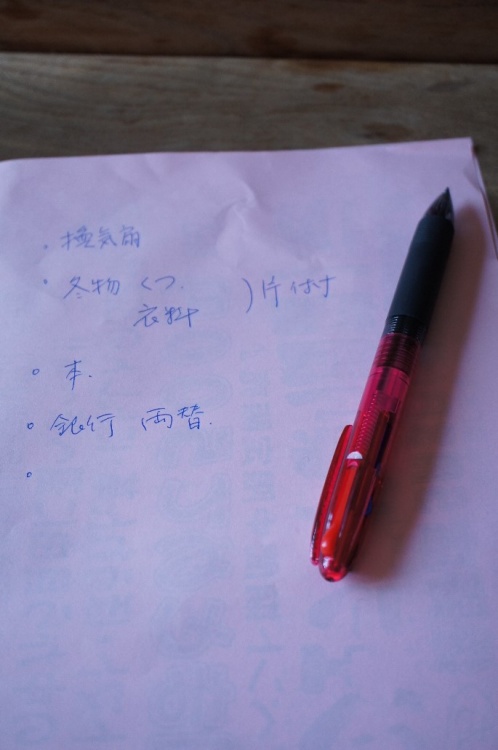 ・換気扇
・冬物 くつ. )片付
衣料
。本.
。銀行 両替.
。